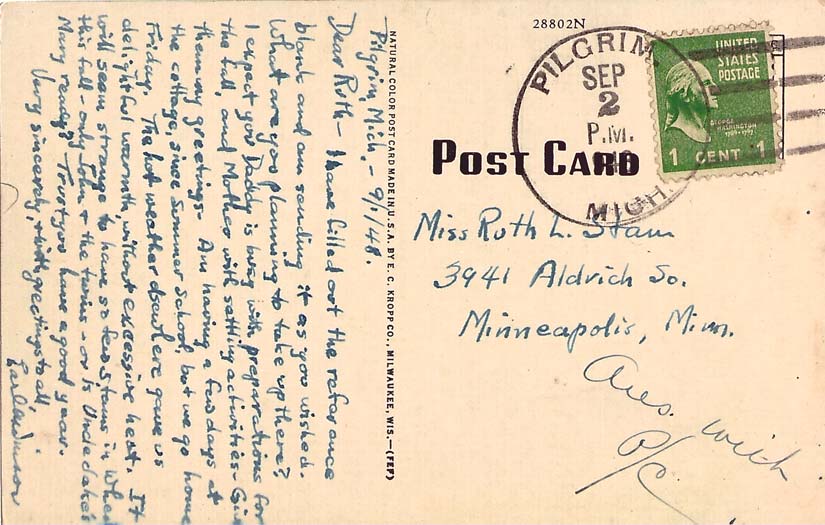 Pilgrim, Mich. - 9/1/48.
Dear Ruth - I have filled out the reference
blank and am sending it as you wished.
What are you planning to take up there?
I expect you Daddy is busy with preparations for
the fall, and Mother with settling activities - Give
them my greetings. Am having a few days at
the cottage, since Summer School, but we go home
Friday. The hot weather elsewhere gave us
delightful warmth, without excessive heat. It
will seem strange to have so few Stams in Whea
this fall - only John & the twins - or is
Mary ready? Trust you have a good year.
Very sincerely, & with greetings to all,
NATURAL COLOR POST CARD MADE IN U. S. A. BY E. C. KROPP CO., MILWAUKEE, WIS.—(FEP)
28802N
PILGRIM
SEP
2
P.M.
MICH.
UNITED
STATES
POSTAGE
GEORGE
WASHINGTON
1 CENT 1
POST CARD
Miss Ruth L. Stam
3941 Aldrich So.
Minneapolis, Minn.
Ans. with
P/C